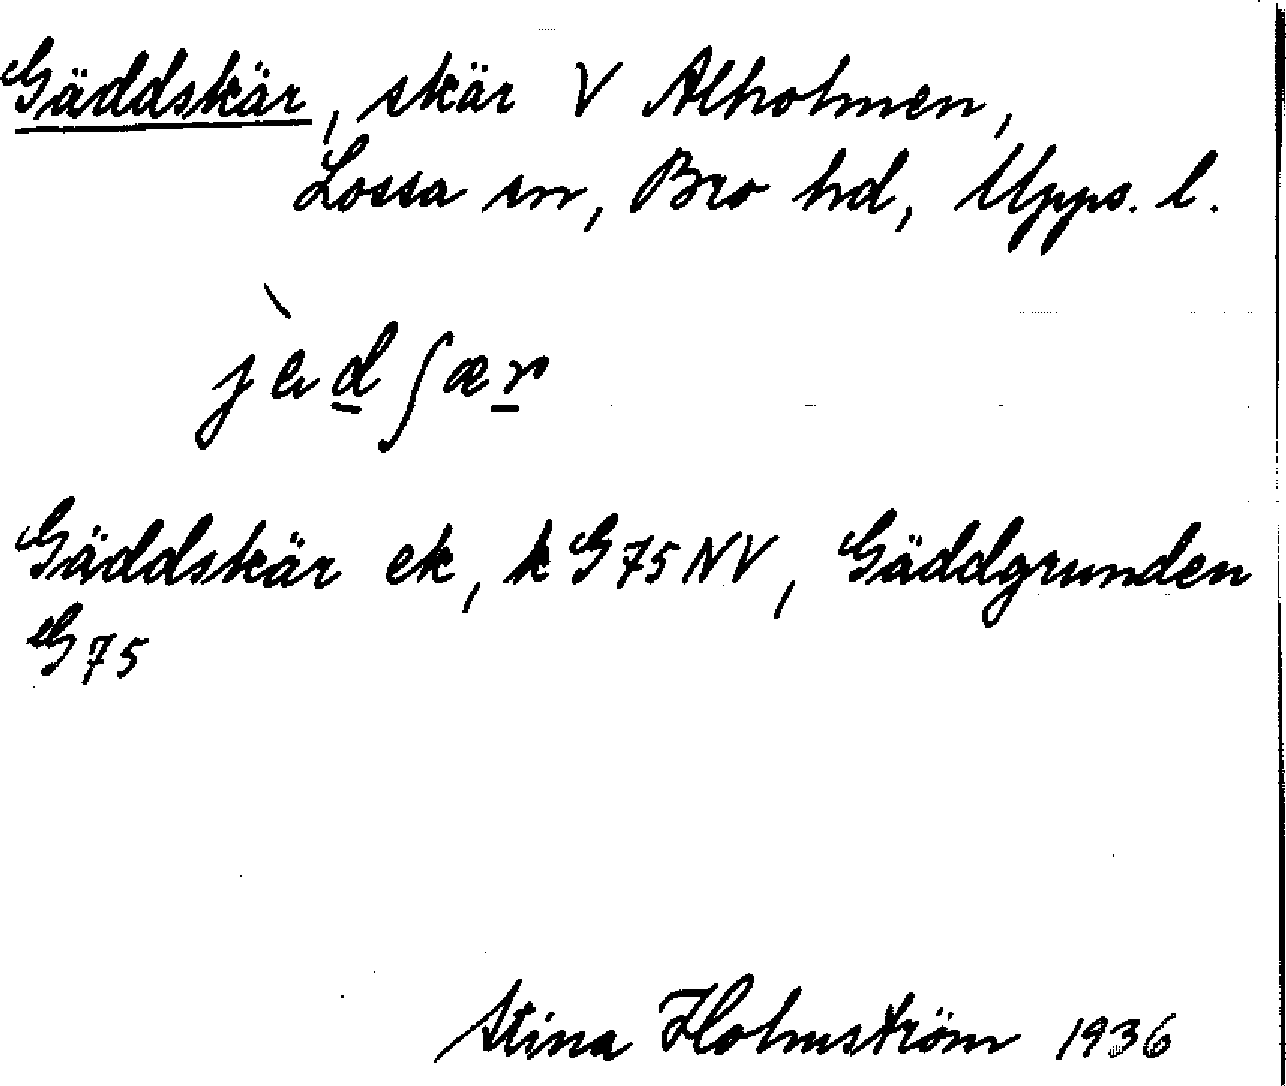 Gäddskär, skär V Alholmen,
Lossa sn, Bro hd, Upps. l.
jèdʃær
Gäddskär ek, k G75NV, Gäddgrunden
G75
Stina Holmström 1936